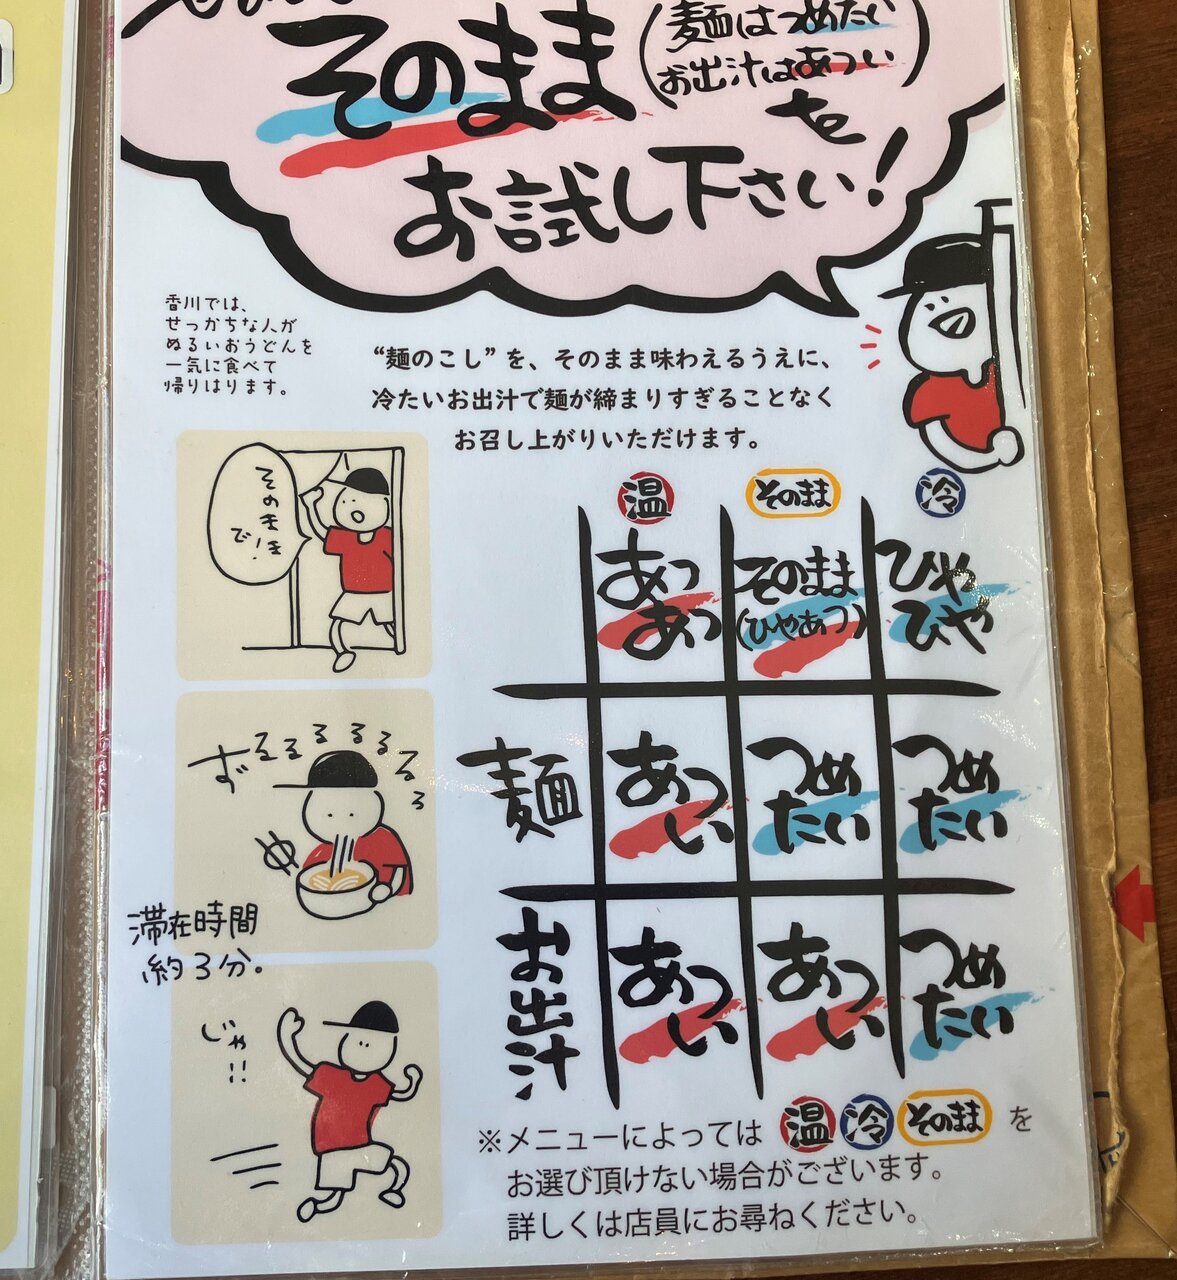 そのまま
(麺はつめたい
お出汁はあつい)
を
お試し下さい!
香川では、
せっかちな人が
ぬるいおうどんを
一気に食べて
帰りはります。
“麺のこし”を、そのまま味わえるうえに、
冷たいお出汁で麺が締まりすぎることなく
お召し上がりいただけます。
そのまま
で!
ずるるるるるるる
滞在時間
約3分。
じゃ!!
温 そのまま 冷
あつあつ そのまま(ひやあつ) ひやひや
麺 あつい つめたい つめたい
お出汁 あつい あつい つめたい
※メニューによっては 温 冷 そのまま を
お選び頂けない場合がございます。
詳しくは店員にお尋ねください。